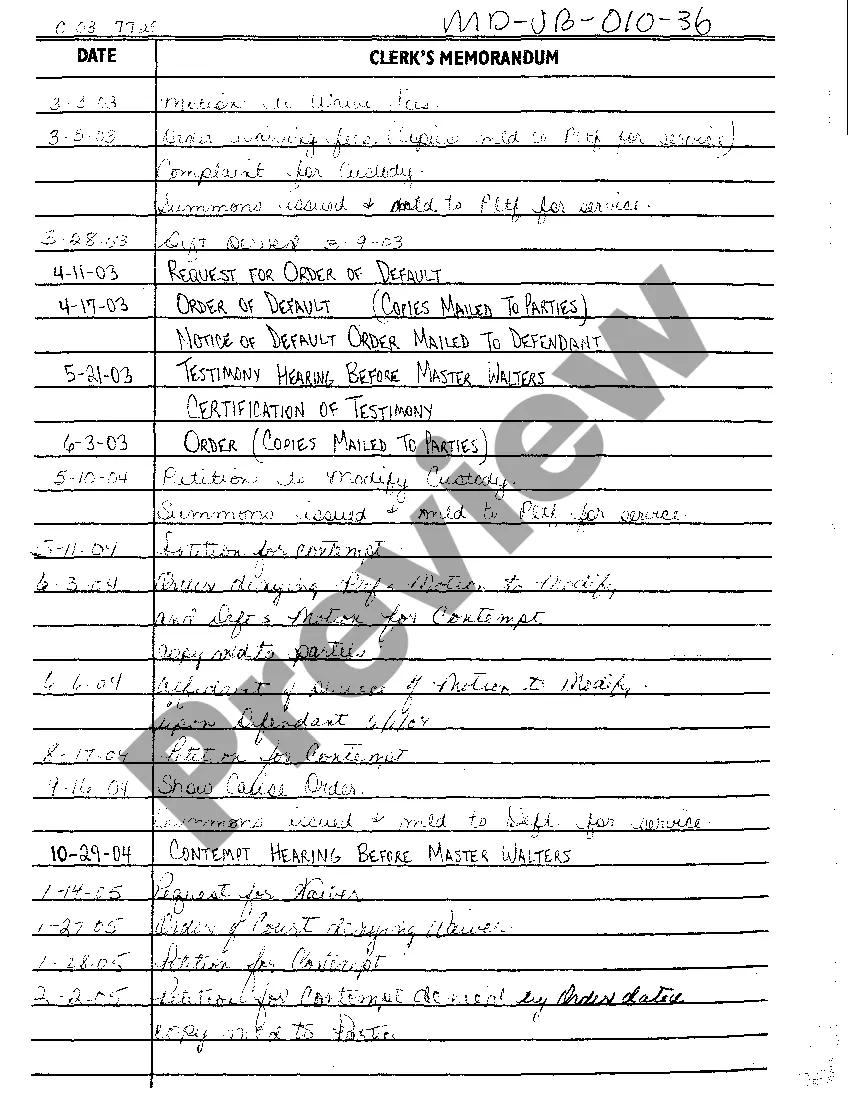 C 03 772
MD-JB-010-36
DATE CLERK'S MEMORANDUM
3-3-03 Motion to Waive Fees
3-5-03 Order waiving fees (Copies mld to Pltf for service)
Complaint for Custody.
Summons issued & mld to Pltf for service.
3-28-03 3-9-03
4-11-03 REQUEST FOR ORDER OF DEFAULT
4-17-03 ORDER OF DEFAULT (COPIES MAILED TO PARTIES)
NOTICE OF DEFAULT ORDER MAILED TO DEFENDANT
5-21-03 TESTIMONY HEARING BEFORE MASTER WALTERS
CERTIFICATION OF TESTIMONY
6-3-03 ORDER (COPIES MAILED TO PARTIES)
5-10-04 Petition to Modify Custody.
Summons issued & mld to Pltf for service
5-11-04 Petition for contempt
6-3-04 Order denying Pltf's Motion to Modify
and Deft's Motion for Contempt
copy mld to parties
6-04 Affidavit of Service of Motion to Modify
upon Defendant
8-17-04 Petition for Contempt
9-16-04 Show Cause Order.
Summons issued & mld to Deft for service.
10-29-04 CONTEMPT HEARING BEFORE MASTER WALTERS
1-14-05 Request for Waiver
1-27-05 Order of Court denying Waiver
1-28-05 Petition for Contempt
2-2-05 Petition for Contempt denied by Order dated
copy mld to
Preview